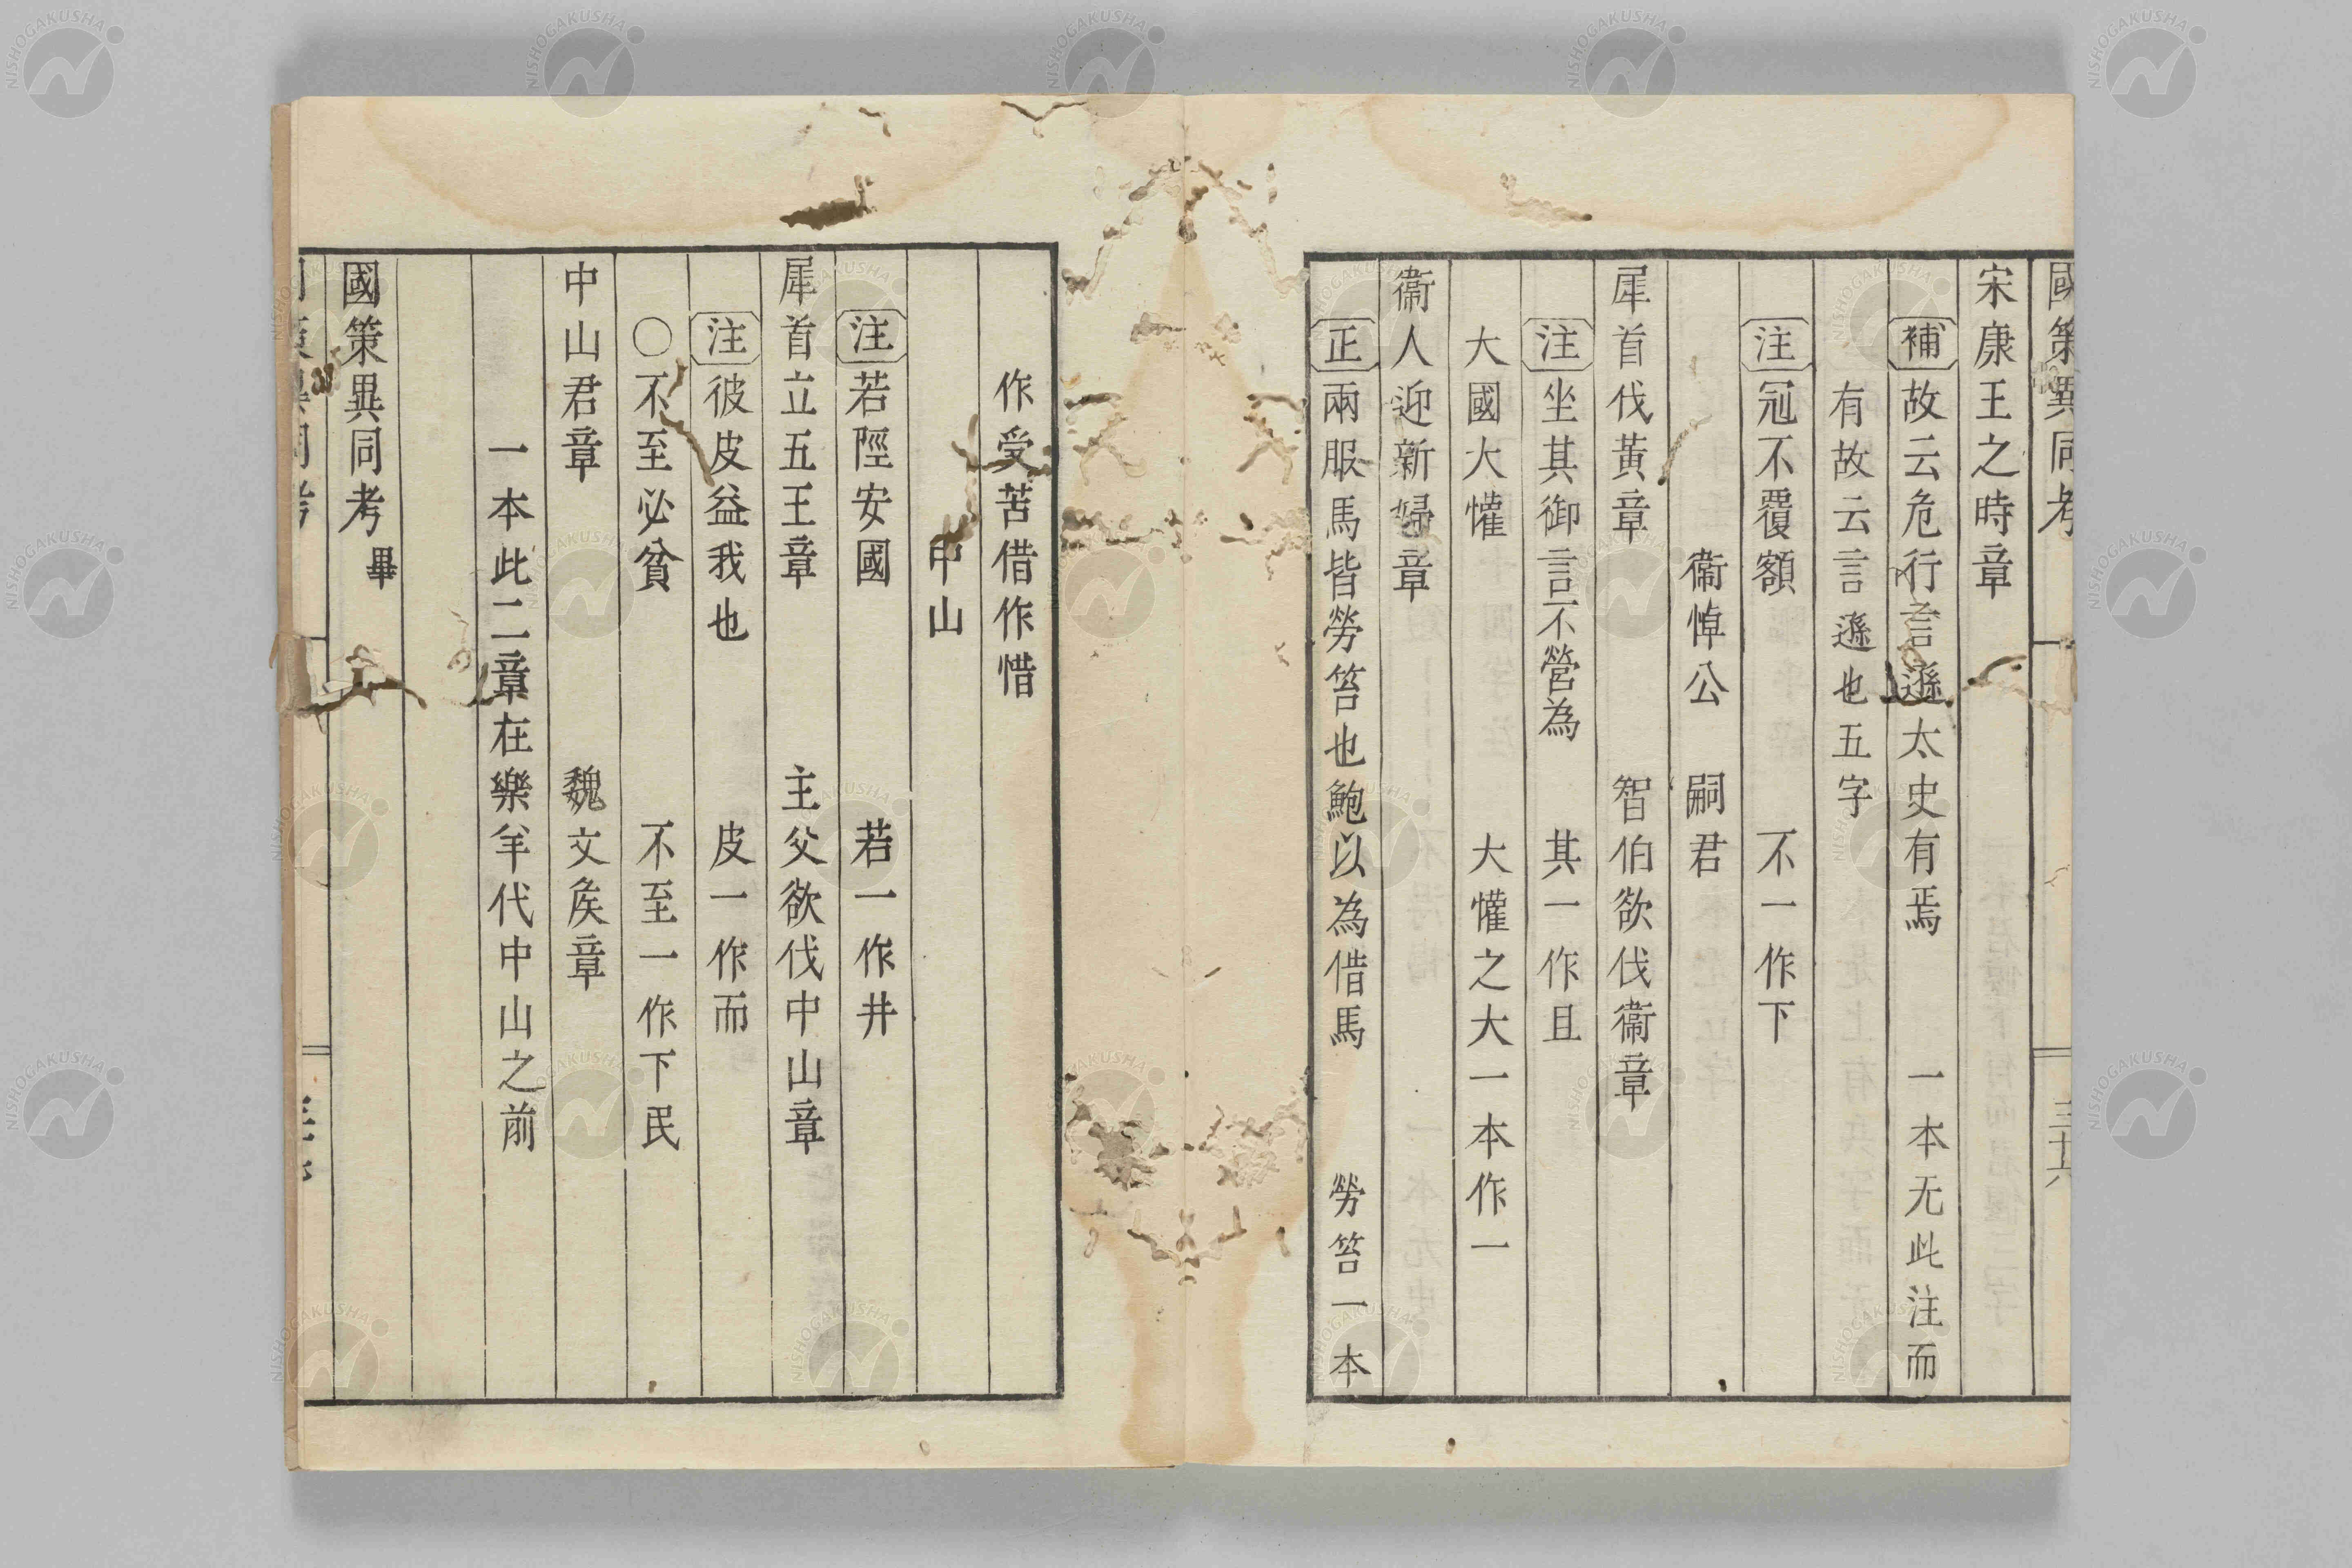 國策異同考
三十六
宋康王之時章
補 故云危行言遜太史有焉 一本无此注而
有故云言遜也五字
注 冠不覆額 不一作下
衞悼公 嗣君
犀首伐黃章 智伯欲伐衞章
注 坐其御言不營為 其一作且
大國大懽 大懽之大一本作一
衞人迎新婦章
正 兩服馬皆勞笞也鮑以為借馬 勞笞一本
作受苦借作惜
中山
注 若陘安國 若一作井
犀首立五王章 主父欲伐中山章
注 彼皮益我也 皮一作而
〇不至必貧 不至一作下民
中山君章 魏文矦章
一本此二章在樂羊代中山之前
國策異同考 畢
NISHOGAKUSHA